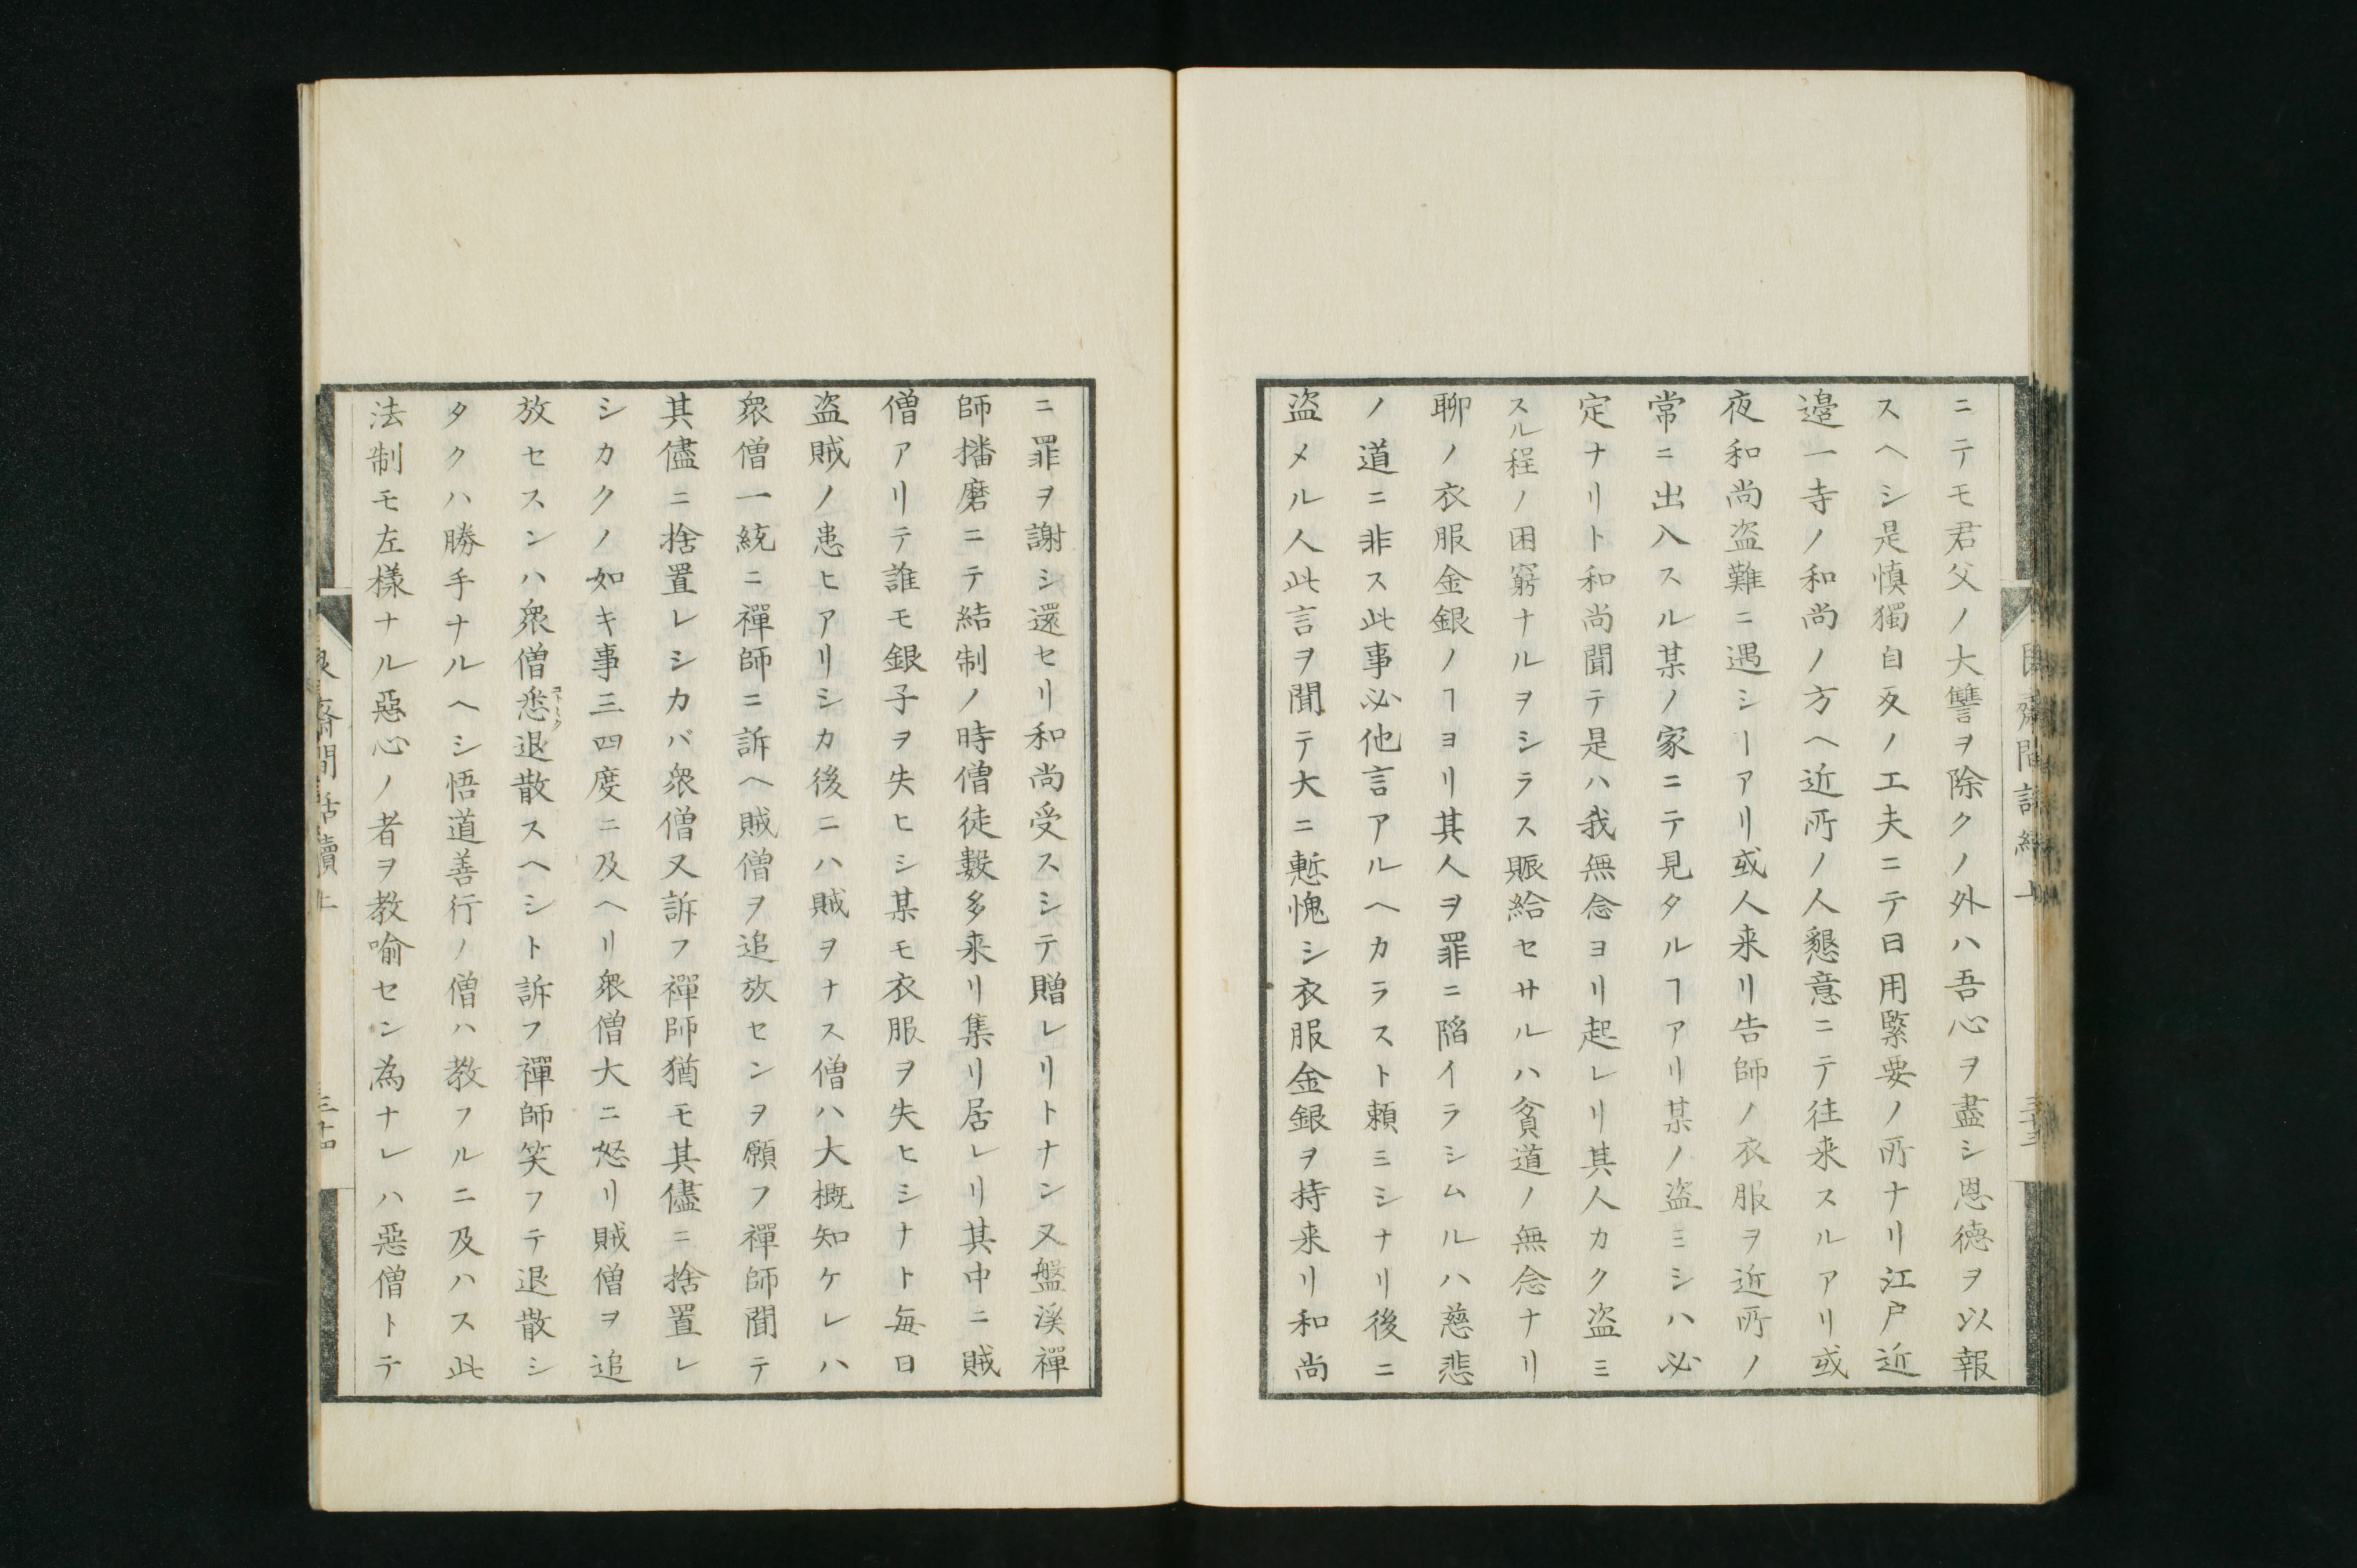 ニテモ君父ノ大讐ヲ除クノ外ハ吾心ヲ盡シ恩徳ヲ以報
スヘシ是慎獨自反ノ工夫ニテ日用緊要ノ所ナリ江戸近
邉一寺ノ和尚ノ方ヘ近所ノ人懇意ニテ往来スルアリ或
夜和尚盗難ニ遇シーアリ或人来リ告師ノ衣服ヲ近所ノ
常ニ出入スル某ノ家ニテ見タルヿアリ某ノ盗ミシハ必
定ナリト和尚聞テ是ハ我無念ヨリ起レリ其人カク盗ミ
スル程ノ困窮ナルヲシラス賑給セサルハ貧道ノ無念ナリ
聊ノ衣服金銀ノヿヨリ其人ヲ罪ニ陥イラシムルハ慈悲
ノ道ニ非ス此事必他言アルヘカラスト頼ミシナリ後ニ
盗メル人此言ヲ聞テ大ニ慙愧シ衣服金銀ヲ持来リ和尚
ニ罪ヲ謝シ還セリ和尚受スシテ贈レリトナン又盤渓禪
師播磨ニテ結制ノ時僧徒數多来リ集リ居レリ其中ニ賊
僧アリテ誰モ銀子ヲ失ヒシ某モ衣服ヲ失ヒシナト毎日
盗賊ノ患ヒアリシカ後ニハ賊ヲナス僧ハ大概知ケレハ
衆僧一統ニ禪師ニ訴ヘ賊僧ヲ追放センヲ願フ禪師聞テ
其儘ニ捨置レシカバ衆僧又訴フ禪師猶モ其儘ニ捨置レ
シカクノ如キ事三四度ニ及ヘリ衆僧大ニ怒リ賊僧ヲ追
放セスンハ衆僧悉退散スヘシト訴フ禪師笑フテ退散シ
タクハ勝手ナルヘシ悟道善行ノ僧ハ教フルニ及ハス此
法制モ左様ナル惡心ノ者ヲ教喩セン為ナレハ惡僧トテ
齋間話續上
三十四